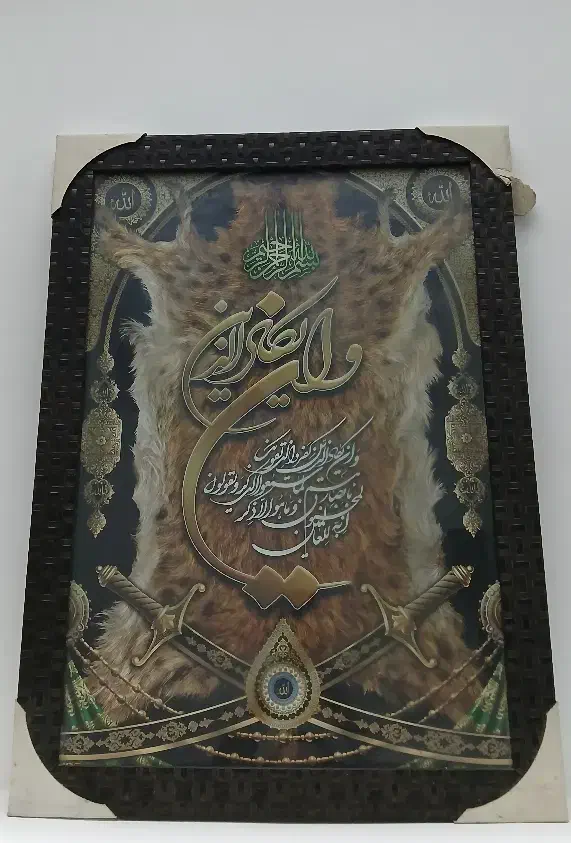 الله
الله
بسم الله الرحمن الرحیم
وان یکاد الذین
وان یکاد الذین کفروا لیزلقونک
بابصارهم لما سمعوا الذکر و یقولون
انه لمجنون و ما هو الا ذکر
للعالمین
الله